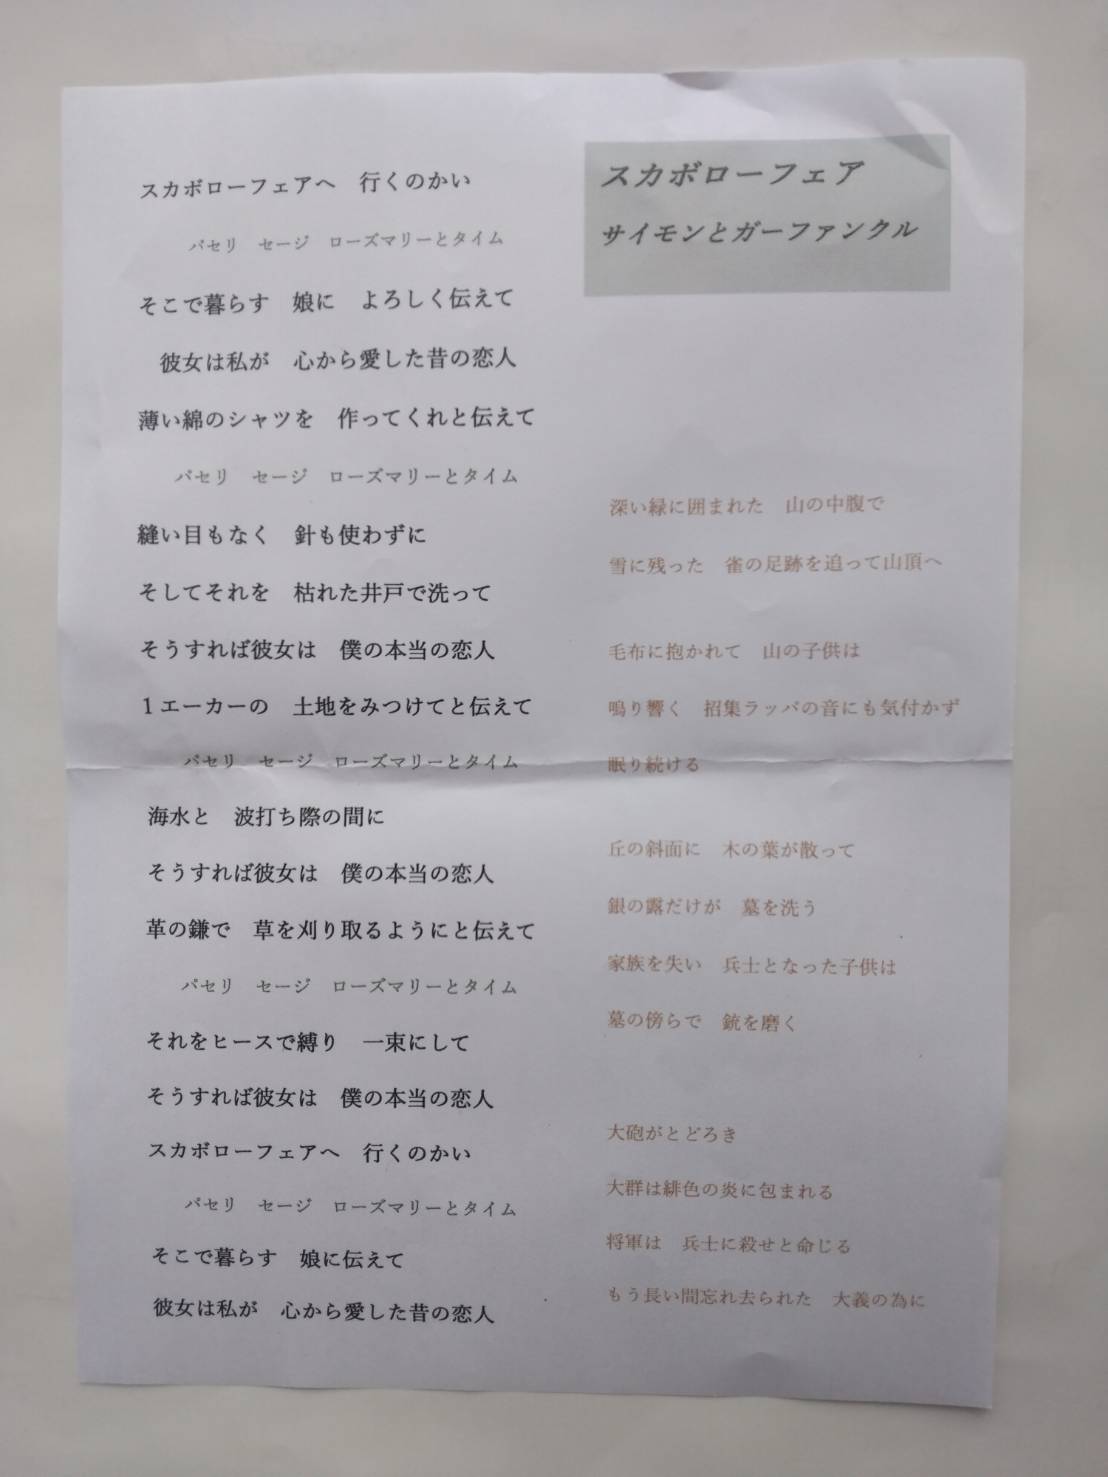 スカボローフェア
サイモンとガーファンクル
スカボローフェアへ　行くのかい
パセリ　セージ　ローズマリーとタイム
そこで暮らす　娘に　よろしく伝えて
彼女は私が　心から愛した昔の恋人
薄い綿のシャツを　作ってくれと伝えて
パセリ　セージ　ローズマリーとタイム
縫い目もなく　針も使わずに
そしてそれを　枯れた井戸で洗って
そうすれば彼女は　僕の本当の恋人
1エーカーの　土地をみつけてと伝えて
パセリ　セージ　ローズマリーとタイム
海水と　波打ち際の間に
そうすれば彼女は　僕の本当の恋人
革の鎌で　草を刈り取るようにと伝えて
パセリ　セージ　ローズマリーとタイム
それをヒースで縛り　一束にして
そうすれば彼女は　僕の本当の恋人
スカボローフェアへ　行くのかい
パセリ　セージ　ローズマリーとタイム
そこで暮らす　娘に伝えて
彼女は私が　心から愛した昔の恋人
深い緑に囲まれた　山の中腹で
雪に残った　雀の足跡を追って山頂へ
毛布に抱かれて　山の子供は
鳴り響く　招集ラッパの音にも気付かず
眠り続ける
丘の斜面に　木の葉が散って
銀の露だけが　墓を洗う
家族を失い　兵士となった子供は
墓の傍らで　銃を磨く
大砲がとどろき
大群は緋色の炎に包まれる
将軍は　兵士に殺せと命じる
もう長い間忘れ去られた　大義の為に